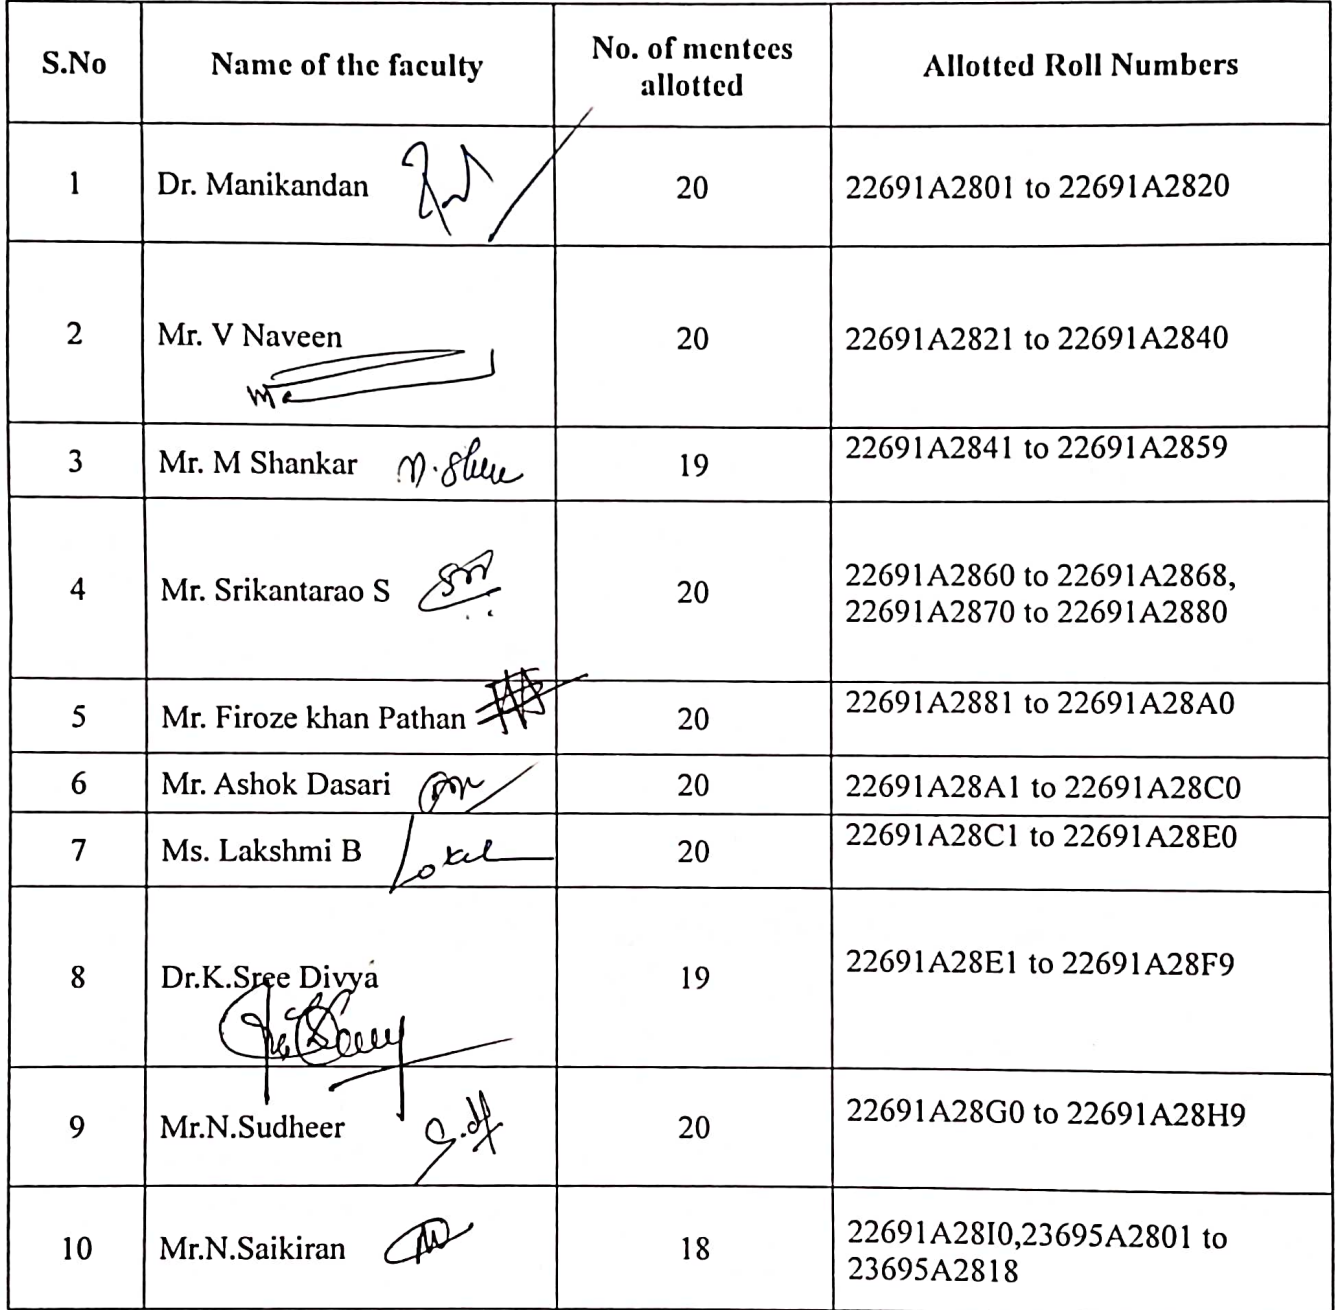 S.No Name of the faculty No. of mentees allotted Allotted Roll Numbers
1 Dr. Manikandan 20 22691A2801 to 22691A2820
2 Mr. V Naveen 20 22691A2821 to 22691A2840
3 Mr. M Shankar 19 22691A2841 to 22691A2859
4 Mr. Srikantarao S 20 22691A2860 to 22691A2868,
22691A2870 to 22691A2880
5 Mr. Firoze khan Pathan 20 22691A2881 to 22691A28A0
6 Mr. Ashok Dasari 20 22691A28A1 to 22691A28C0
7 Ms. Lakshmi B 20 22691A28C1 to 22691A28E0
8 Dr.K.Sree Divya 19 22691A28E1 to 22691A28F9
9 Mr.N.Sudheer 20 22691A28G0 to 22691A28H9
10 Mr.N.Saikiran 18 22691A28I0,23695A2801 to
23695A2818